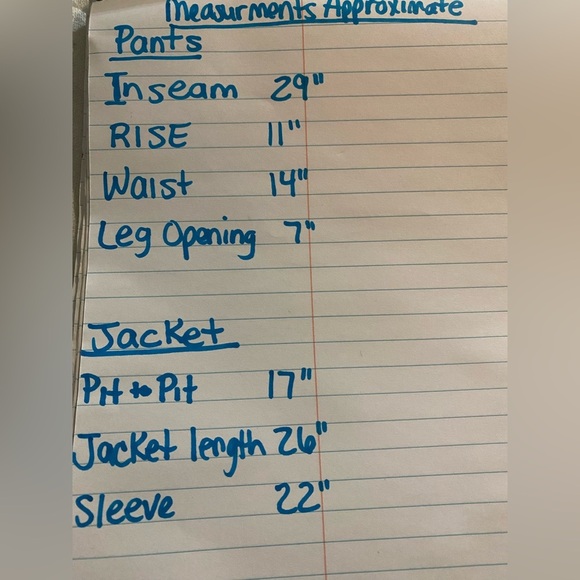 Measurments Approximate
Pants
Inseam 29"
RISE 11"
Waist 14"
Leg Opening 7"
Jacket
Pit to Pit 17"
Jacket length 26"
Sleeve 22"